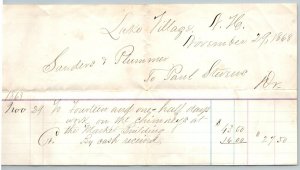 Lake Village, N. H.
November 29, 1868
Sanders & Plummer
To Paul Stevens
Dr.
1868
Nov 29 To Fourteen and one-half days
work on the chimneys at
the Market Building $ 43.50
Cr. By cash received 16.00 $ 27.50